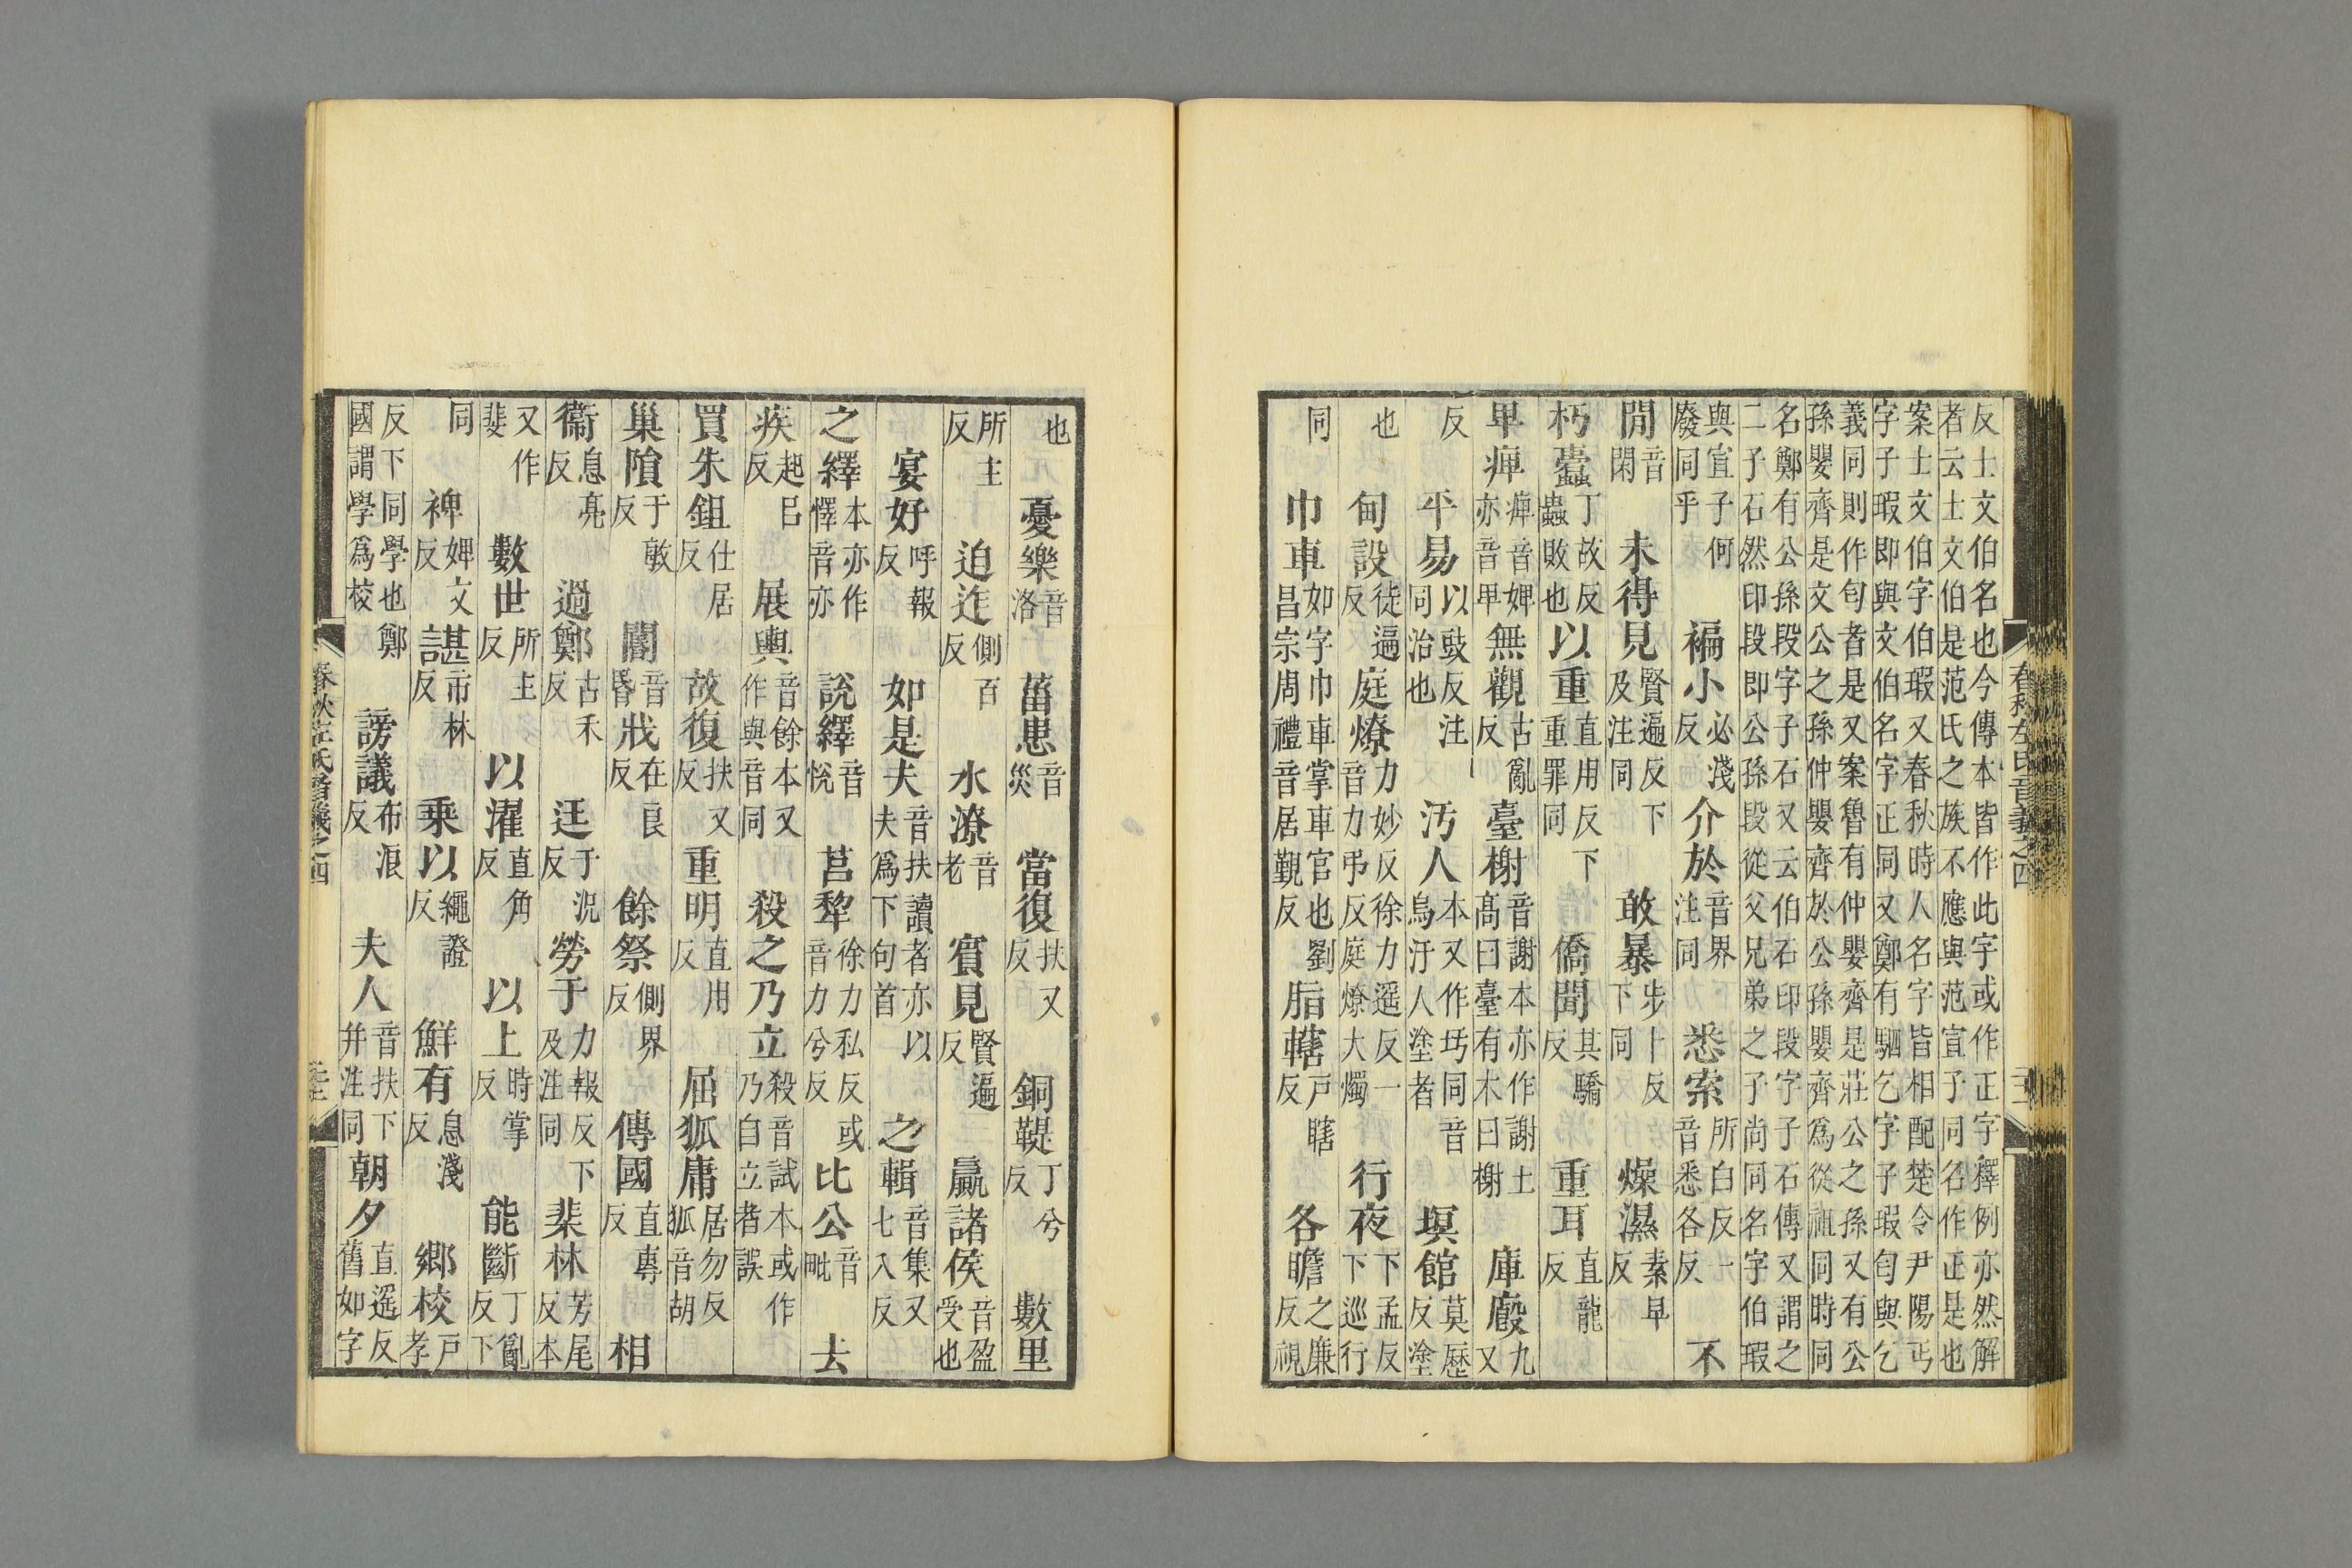 春秋左氏音義之四
反士文伯名也今傳本皆作此字或作正字釋例亦然解
者云士文伯是范氏之族不應與范宣子同名作正是也
案士文伯字伯瑕又春秋時人名字皆相配楚令尹陽丐
字子瑕即與文伯名字正同又鄭有駟乞字子瑕匄與乞
義同則作匄者是又案魯有仲嬰齊是莊公之孫又有公
孫嬰齊是文公之孫仲嬰齊於公孫嬰齊爲從祖同時同
名鄭有公孫段字子石又云伯石印段字子石傳又謂之
二子石然印段即公孫段從父兄弟之子尚同名字伯瑕
與宣子何廢同乎 褊小必淺反 介於音界注同 悉索所白反一音悉各反 不
閒音閑 未得見賢遍反下及注同 敢暴步卜反下同 燥濕素早反
朽蠹丁故反蟲敗也 以重直用反下重罪同 僑聞其驕反 重耳直龍反
卑庳庳音婢亦音卑 無觀古亂反 臺榭音謝本亦作謝土高曰臺有木曰榭 庫廄九又
反 平易以豉反注同治也 汚人本又作圬同音烏汙人塗者 塓館莫歷反塗
也 甸設徒遍反 庭燎力妙反徐力遥反一音力弔反庭燎大燭 行夜下孟反下巡行
同 巾車如字巾車掌車官也劉昌宗周禮音居覲反 脂轄戶瞎反 各瞻之廉反視
也 憂樂音洛 菑患音災 當復扶又反 銅鞮丁兮反 數里
所主反 迫迮側百反 水潦音老 賓見賢遍反 贏諸侯音盈受也
宴好呼報反 如是夫音扶讀者亦以夫爲下句首 之輯音集又七入反
之繹本亦作懌音亦 說繹音悅 莒犂徐力私反或音力兮反 比公音毗 去
疾起呂反 展輿音餘本又作與音同 殺之乃立殺音試本或作乃自立者誤
買朱鉏仕居反 故復扶又反 重明直用反 屈狐庸居勿反狐音胡
巢隕于敏反 閽音昏 戕在良反 餘祭側界反 傳國直專反 相
衞息亮反 過鄭古禾反 迋于況反 勞于力報反下及注同 棐林芳尾反本
又作斐 數世所主反 以濯直角反 以上時掌反 能斷丁亂反下
同 裨婢支反 諶市林反 乘以繩證反 鮮有息淺反 鄉校戶孝
反下同學也鄭國謂學爲校 謗議布浪反 夫人音扶下并注同 朝夕直遥反舊如字
春秋左氏音義之四